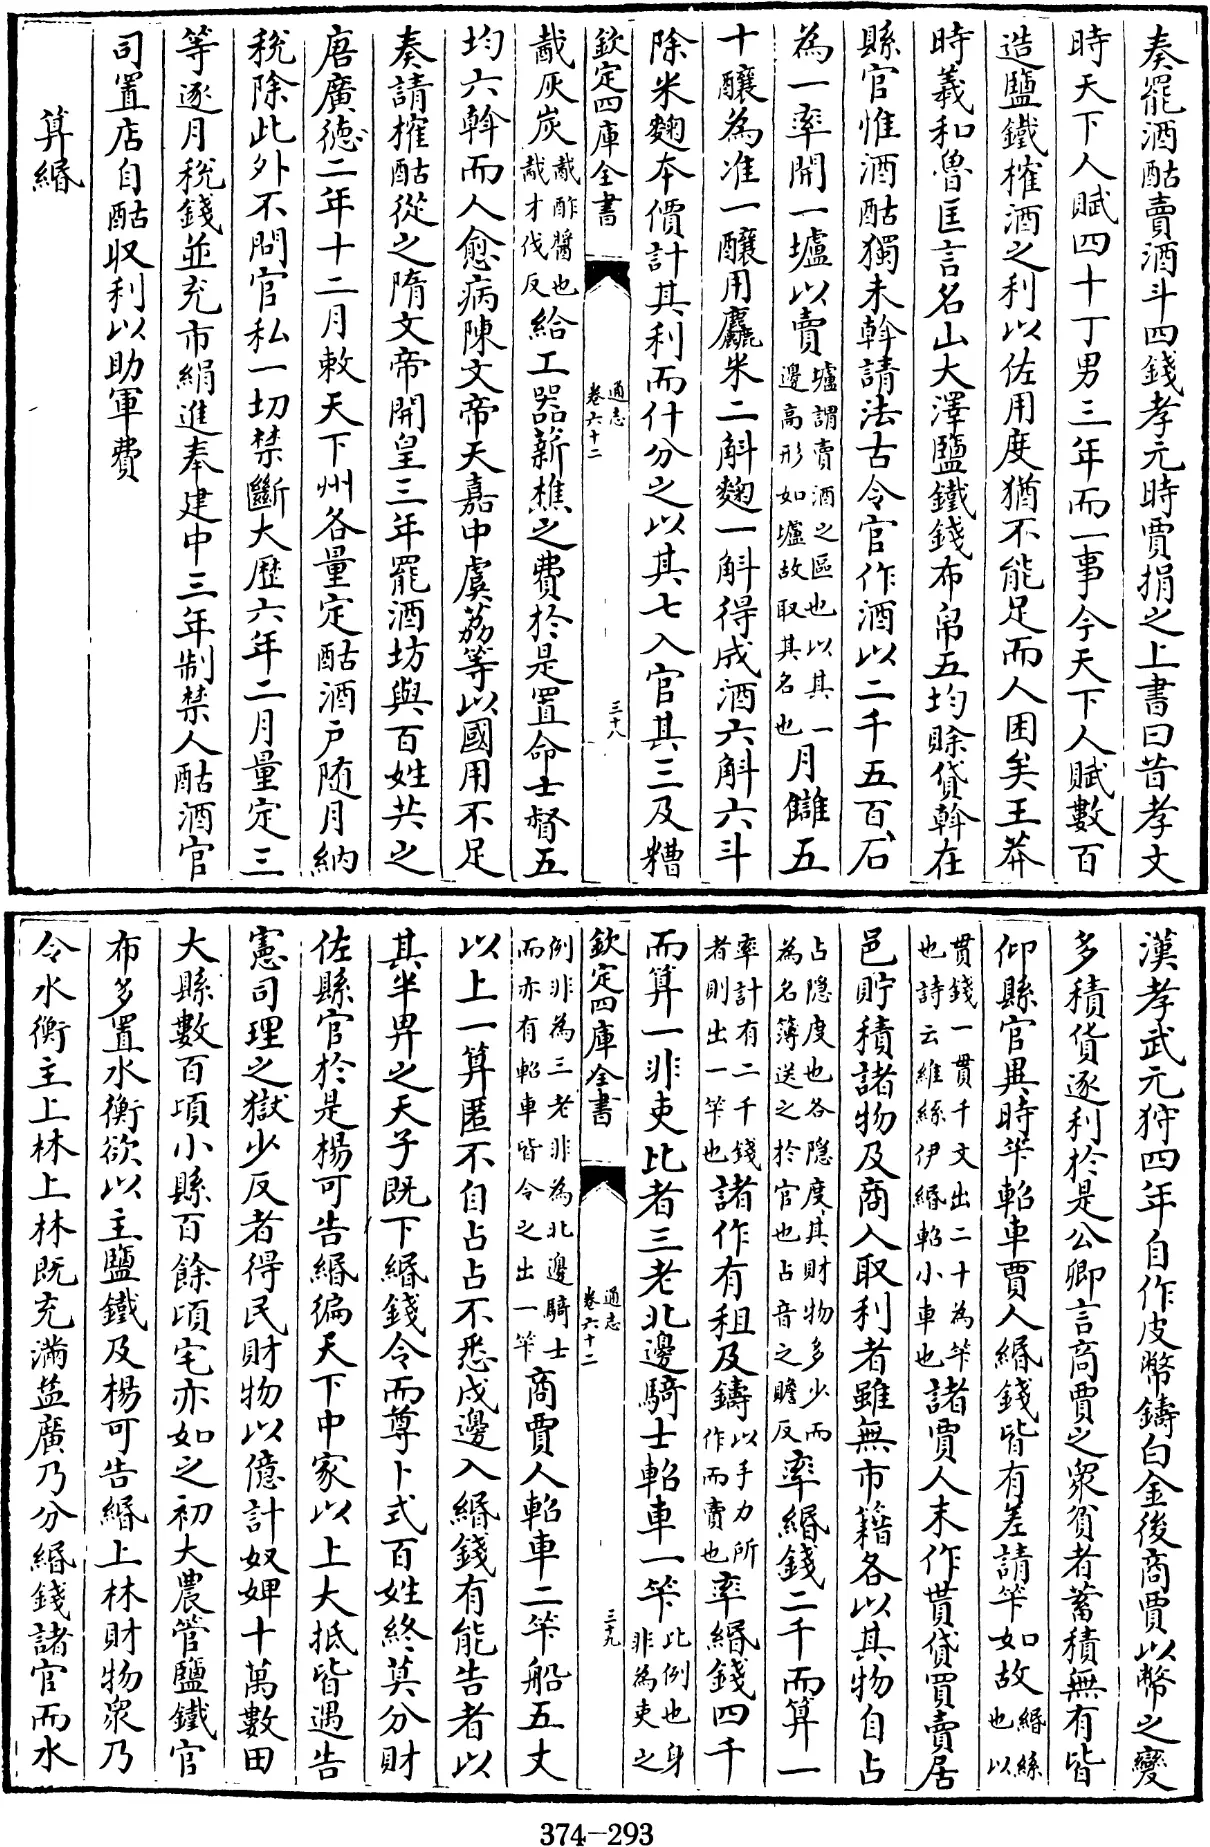 奏罷酒酤賣酒斗四錢孝元時賈捐之上書曰昔孝文
時天下人賦四十丁男三年而一事今天下人賦數百
造鹽鐵榷酒之利以佐用度猶不能足而人困矣王莽
時羲和魯匡言名山大澤鹽鐵錢布帛五均賒貸斡在
縣官惟酒酤獨未斡請法古令官作酒以二千五百石
為一率開一壚以賣壚謂賣酒之區也以其一邊高形如壚故取其名也月讎五
十釀為准一釀用麤米二斛麴一斛得成酒六斛六斗
除米麴本價計其利而什分之以其七入官其三及糟
欽定四庫全書 通志卷六十二 三十八
酨灰炭酨酢醬也酨才伐反給工器薪樵之費於是置命士督五
均六斡而人愈病陳文帝天嘉中虞荔等以國用不足
奏請榷酤從之隋文帝開皇三年罷酒坊與百姓共之
唐廣德二年十二月敕天下州各量定酤酒戶随月納
稅除此外不問官私一切禁斷大歷六年二月量定三
等逐月稅錢並充市絹進奉建中三年制禁人酤酒官
司置店自酤収利以助軍費
算緡
漢孝武元狩四年自作皮幣鑄白金後商賈以幣之變
多積貨逐利於是公卿言商賈之衆貧者蓄積無有皆
仰縣官異時筭軺車賈人緡錢皆有差請筭如故緡絲也以
貫錢一貫千文出二十為筭也詩云維絲伊緡軺小車也諸賈人末作貰貸買賣居
邑貯積諸物及商入取利者雖無市籍各以其物自占
占隐度也各隱度其財物多少而為名簿送之於官也占音之贍反率緡錢二千而算一
率計有二千錢者則出一筭也諸作有租及鑄以手力所作而賣也率緡錢四千
而算一非吏比者三老北邊騎士軺車一筭比例也身非為吏之
欽定四庫全書 通志卷六十二 三十九
例非為三老非為北邊騎士而亦有軺車皆令之出一筭商賈人軺車二筭船五丈
以上一算匿不自占占不悉戍邊入緡錢有能告者以
其半畀之天子既下緡錢令而尊卜式百姓終莫分財
佐縣官於是楊可告緡徧天下中家以上大抵皆遇告
憲司理之獄少反者得民財物以億計奴婢十萬數田
大縣數百頃小縣百餘頃宅亦如之初大農管鹽鐵官
布多置水衡欲以主鹽鐵及楊可告緡上林財物衆乃
令水衡主上林上林既充滿益廣乃分緡錢諸官而水
374-293